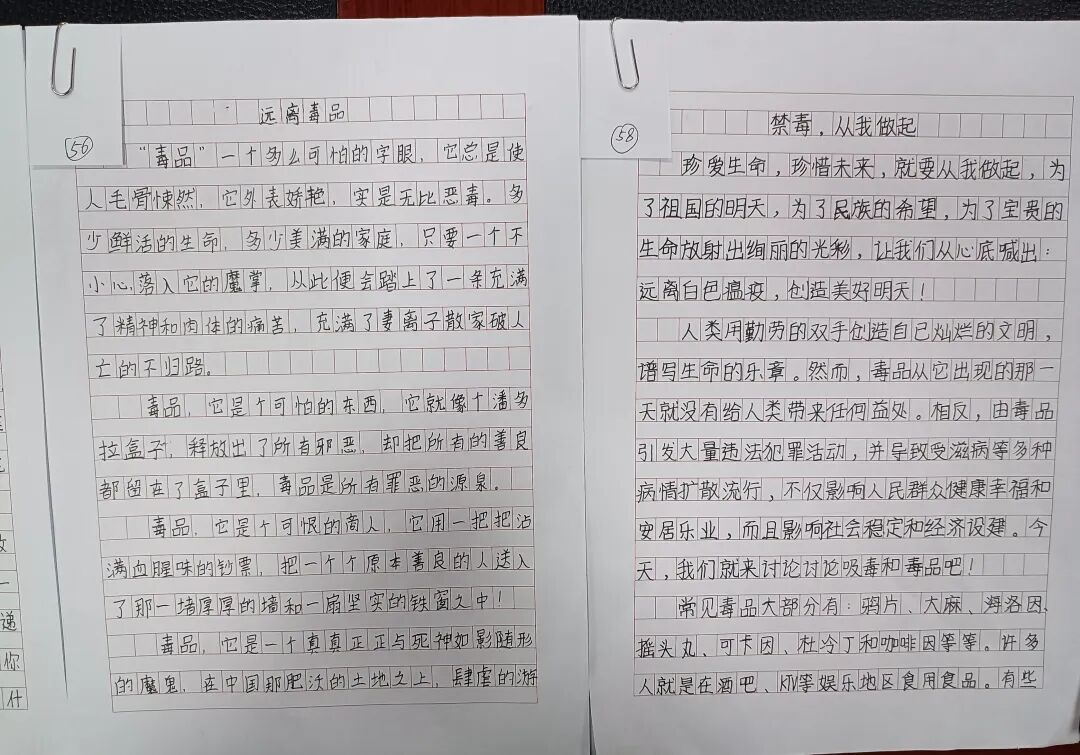 递
你
什
56
远离毒品
“毒品”一个多么可怕的字眼，它总是使
人毛骨悚然，它外表娇艳，实是无比恶毒。多
少鲜活的生命，多少美满的家庭，只要一个不
小心，落入它的魔掌，从此便会踏上了一条充满
了精神和肉体的痛苦，充满了妻离子散家破人
亡的不归路。
毒品，它是个可怕的东西，它就像个潘多
拉盒子，释放出了所有邪恶，却把所有的善良
都留在了盒子里，毒品是所有罪恶的源泉。
毒品，它是个可恨的商人，它用一把把沾
满血腥味的钞票，把一个个原本善良的人送入
了那一堵厚厚的墙和一扇坚实的铁窗之中！
毒品，它是一个真真正正与死神如影随形
的魔鬼，在中国那肥沃的土地之上，肆虐的游
58
禁毒，从我做起
珍爱生命，珍惜未来，就要从我做起，为
了祖国的明天，为了民族的希望，为了宝贵的
生命放射出绚丽的光彩，让我们从心底喊出：
远离白色瘟疫，创造美好明天！
人类用勤劳的双手创造自己灿烂的文明，
谱写生命的乐章。然而，毒品从它出现的那一
天就没有给人类带来任何益处。相反，由毒品
引发大量违法犯罪活动，并导致受滋病等多种
病情扩散流行，不仅影响人民群众健康幸福和
安居乐业，而且影响社会稳定和经济设建。今
天，我们就来讨论讨论吸毒和毒品吧！
常见毒品大部分有：鸦片、大麻、海洛因、
摇头丸、可卡因、杜冷丁和咖啡因等等。许多
人就是在酒吧、KTV等娱乐地区食用食品。有些